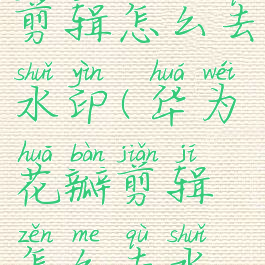 剪辑怎么去
shuǐ yìn huá wéi
水印(华为
huā bàn jiǎn jí
花瓣剪辑
zěn me qù shuǐ
怎么去水